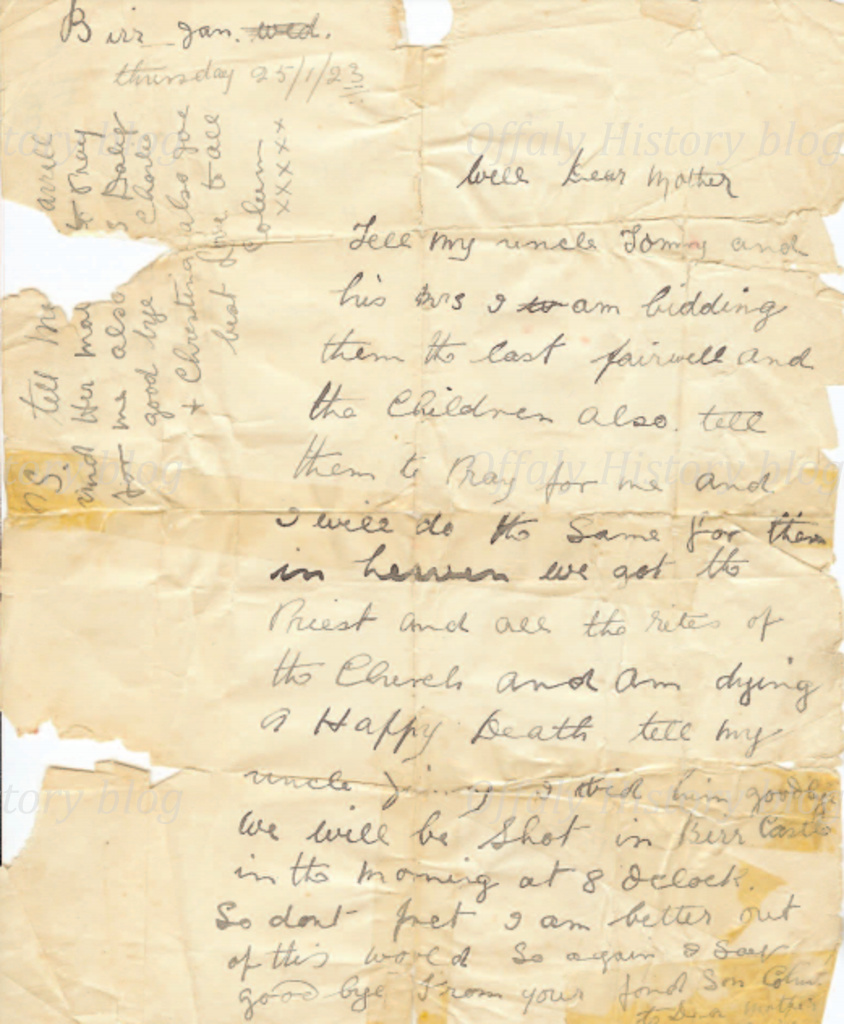 Birr Jan. Wed.
thursday 25/1/23
Well Dear Mother
Tell my uncle Tommy and
his Mrs I to am bidding
them the last fairwell and
the Children also. tell
them to Pray for me and
I will do the Same for them
in heaven we got the
Priest and all the rites of
the Church and am dying
a Happy Death tell my
uncle I bid him goodbye
We will be Shot in Birr Castle
in the morning at 8 Oclock.
So dont fret I am better out
of this world So again I Say
good bye From your fond Son Colum
to Dear Mother
P.S. tell Mrs arrell
and Her may to Pray
for me also Daly
good bye Charlie
+ Christina also give
best love to all
Colum
xxxxx
Offaly History blog